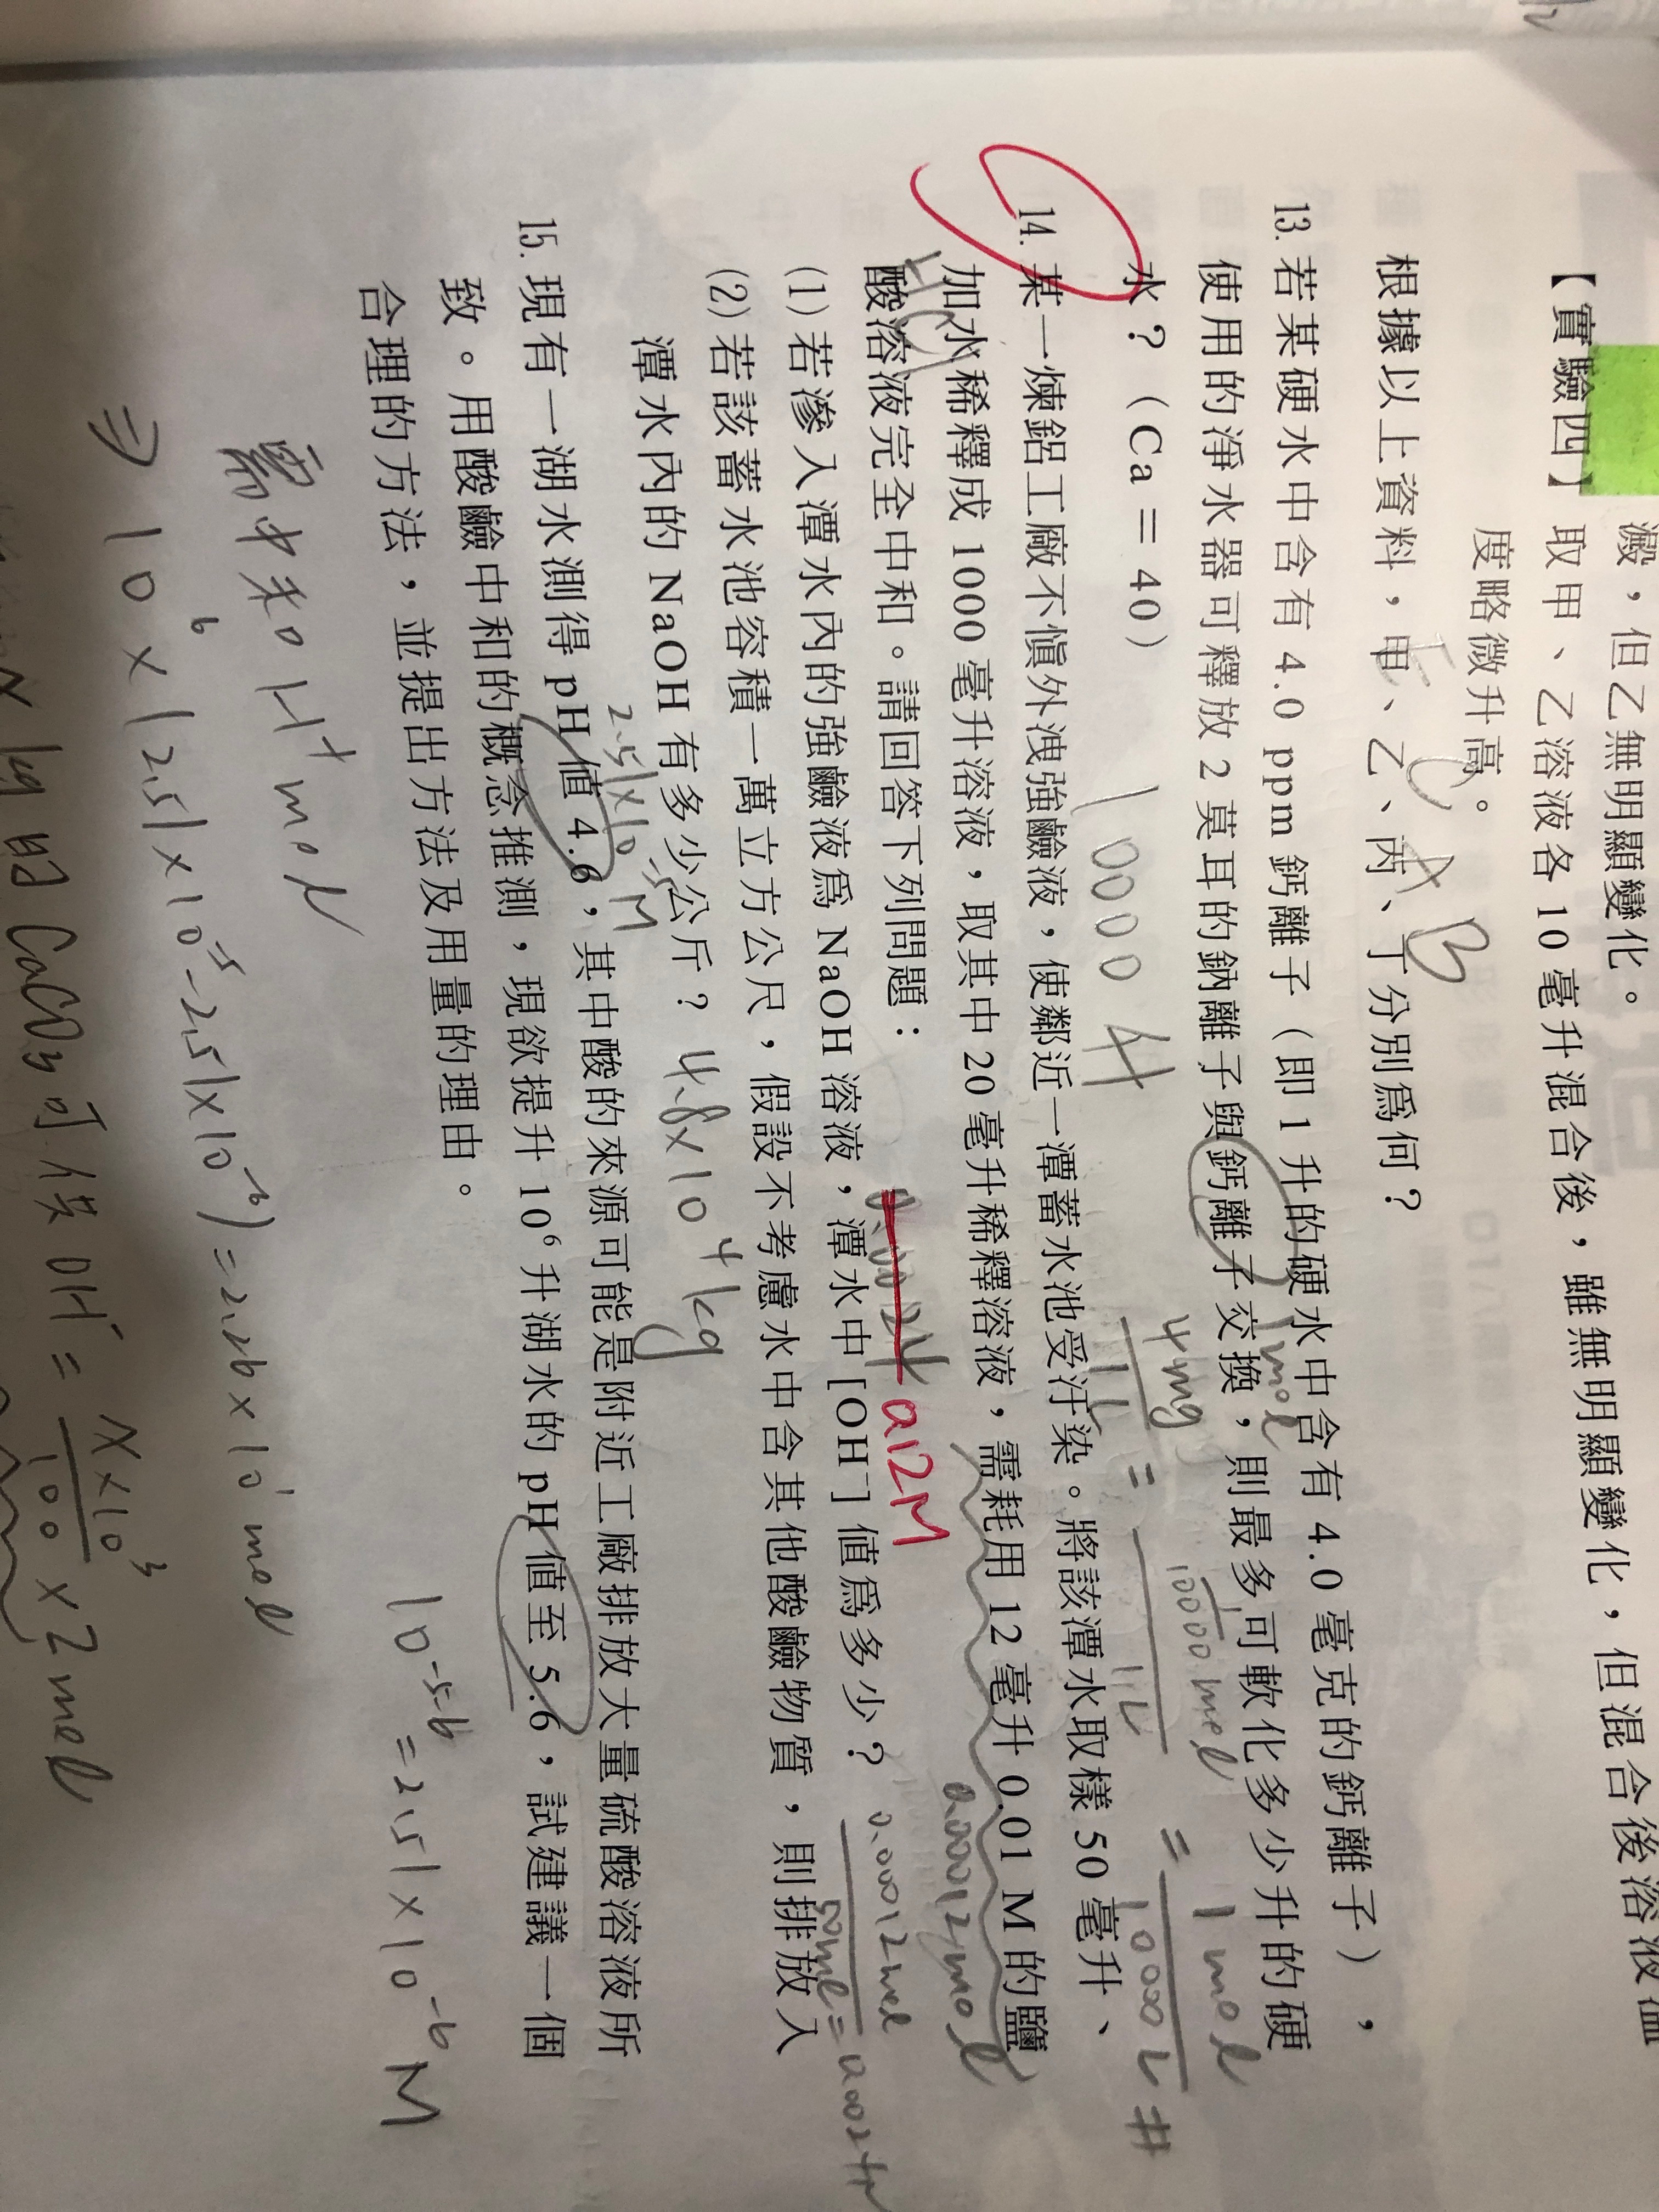 澱，但乙無明顯變化。
【實驗四】取甲、乙溶液各 10 毫升混合後，雖無明顯變化，但混合後溶液溫
度略微升高。
根據以上資料，甲、乙、丙、丁分別為何？
C A B
13. 若某硬水中含有 4.0 ppm 鈣離子（即 1 升的硬水中含有 4.0 毫克的鈣離子），
使用的淨水器可釋放 2 莫耳的鈉離子與鈣離子交換，則最多可軟化多少升的硬
1mol
水？（Ca＝40）
10000 升
4mg / 1L = 1/10000 mol / 1L = 1mol / 10000L #
14. 某一煉鋁工廠不慎外洩強鹼液，使鄰近一潭蓄水池受汙染。將該潭水取樣 50 毫升、
加水稀釋成 1000 毫升溶液，取其中 20 毫升稀釋溶液，需耗用 12 毫升 0.01 M 的鹽
0.00012mol
酸溶液完全中和。請回答下列問題：
(1) 若滲入潭水內的強鹼液為 NaOH 溶液，潭水中［OH⁻］值為多少？
0.12M
0.00012mol
(2) 若該蓄水池容積一萬立方公尺，假設不考慮水中含其他酸鹼物質，則排放入
潭水內的 NaOH 有多少公斤？
4.8×10⁴kg
2.51×10⁻⁵M
15. 現有一湖水測得 pH 值 4.6，其中酸的來源可能是附近工廠排放大量硫酸溶液所
致。用酸鹼中和的概念推測，現欲提升 10⁶ 升湖水的 pH 值至 5.6，試建議一個
合理的方法，並提出方法及用量的理由。
10⁻⁵·⁶ = 2.51×10⁻⁶ M
需中和 H⁺ mol
⇒ 10⁶×(2.51×10⁻⁵-2.51×10⁻⁶)=2.26×10¹ mol
N kg 的 CaCO₃ 可供 OH⁻ = N×10³ / 100 ×2mol